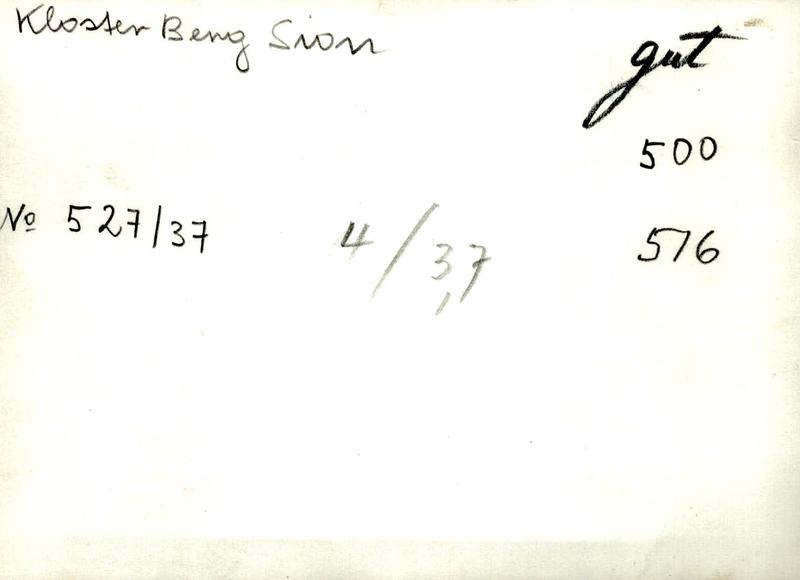 Kloster Berg Sion
gut
500
No 527/37
4/37
576